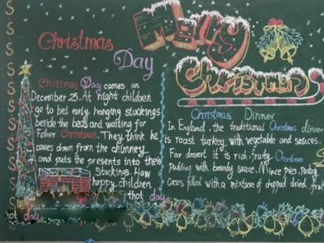 Christmas
Day
Merry
Christmas
Christmas Day comes on
December 25. At night children
go to bed early, hanging stockings
beside the beds and waiting for
Father Christmas. They think he
comes down from the chimney
and puts the presents into their
Stockings. How
happy children
that day
hot day
Christmas Dinner
In England, the traditional Christmas dinner
is roast turkey with vegetable and sauces.
For desert it is rich, fruity Christmas
Pudding with brandy sauce. Mince pies, pastry
Cases filled with a mixture of chopped dried fruit